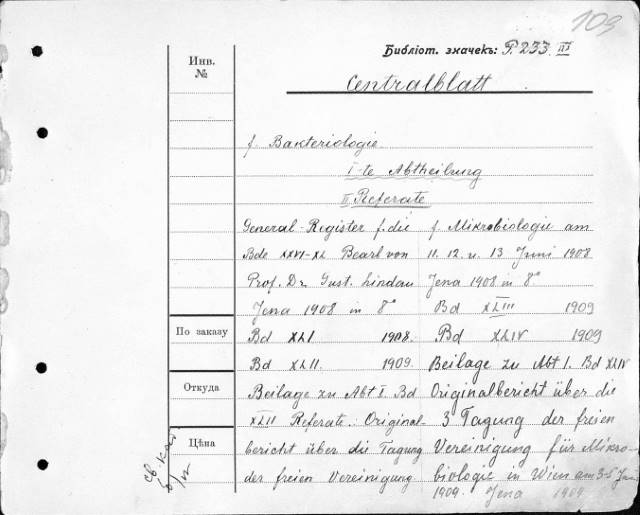 109
Библіот. значекъ: P. 233. III
Centralblatt
Инв.
№
f. Bakteriologie
I-te Abtheilung
II Referate
General-Register f. die
Bde XXVI-XL Bearb von
Prof. Dr. Gust. Lindau
Jena 1908 in 8°
Bd XLI 1908.
Bd XLII. 1909.
Beilage zu Abt I. Bd
XLII Referate. Original-
bericht über die Tagung
der freien Vereinigung
f. Mikrobiologie am
11. 12. u. 13 Juni 1908
Jena 1908 in 8°
Bd XLIII 1909
Bd XLIV 1909
Beilage zu Abt I. Bd XLIV
Originalbericht über die
3 Tagung der freien
Vereinigung für Mikro-
biologie in Wien am 3-5 Juni
1909. Jena 1909
По заказу
Откуда
Цѣна